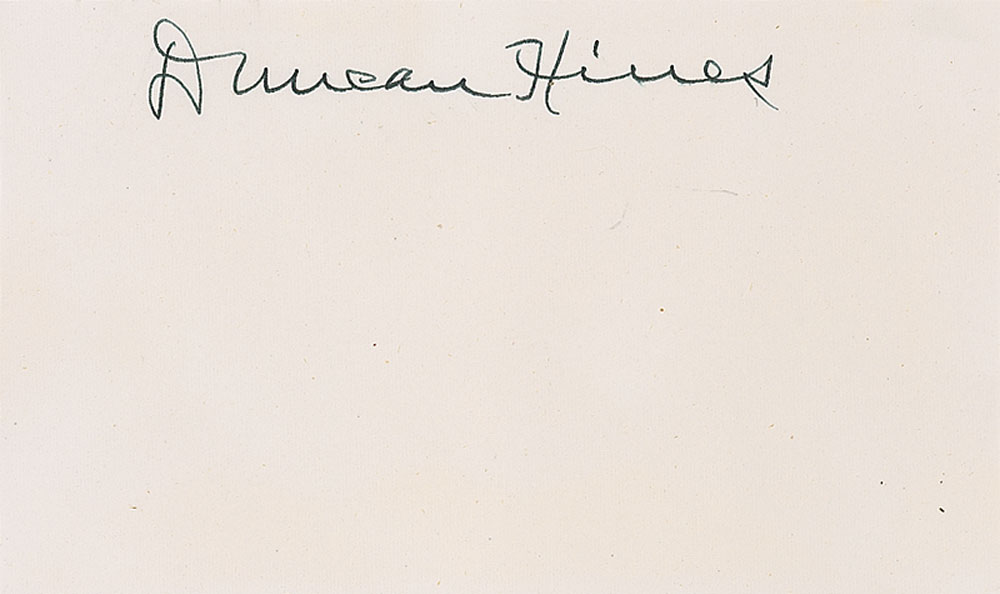 Duncan Hines